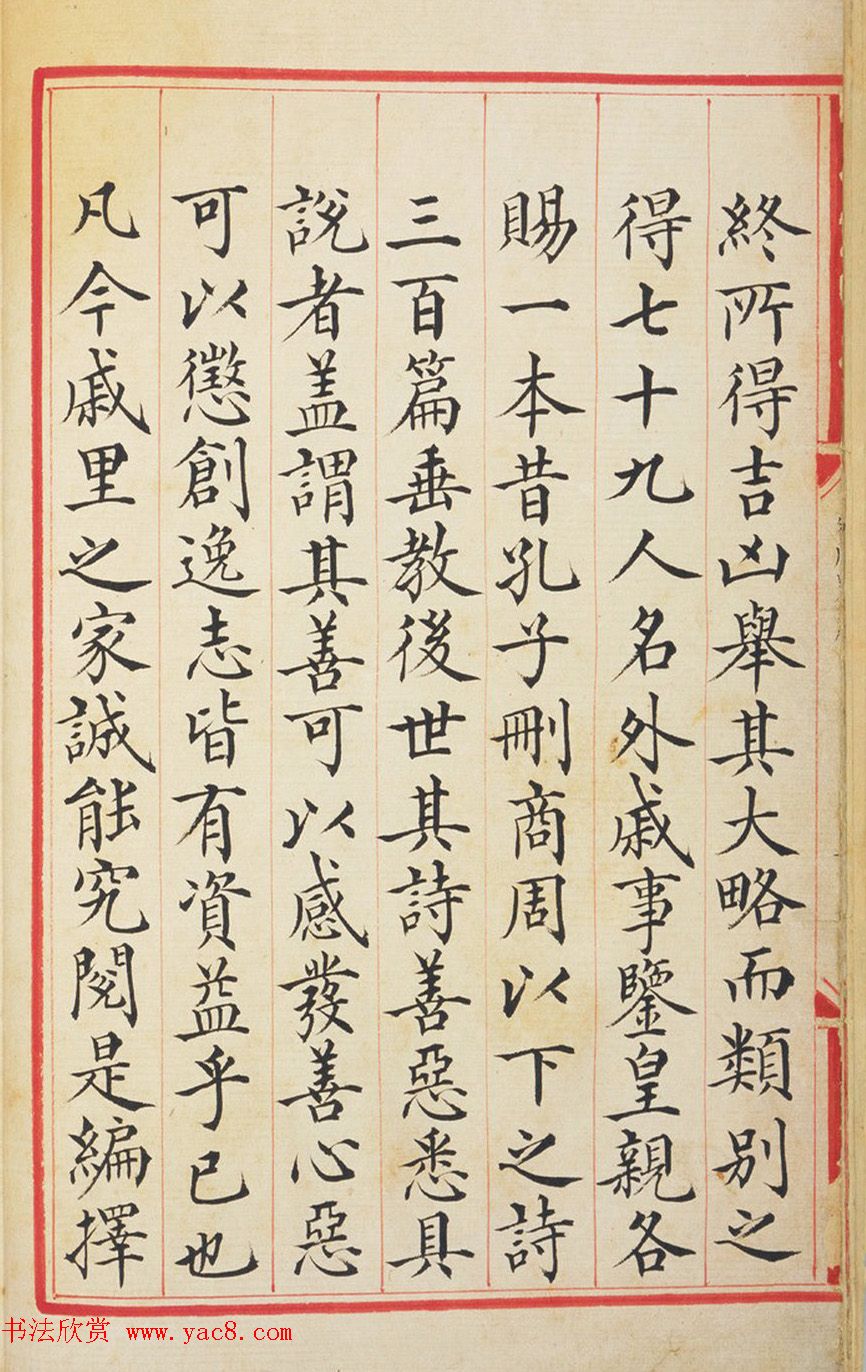 終所得吉凶舉其大略而類别之
得七十九人名外戚事鑒皇親各
賜一本昔孔子刪商周以下之詩
三百篇垂教後世其詩善惡悉具
說者盖謂其善可以感發善心惡
可以懲創逸志皆有資益乎已也
凡今戚里之家誠能究閱是編擇
书法欣赏 www.yac8.com